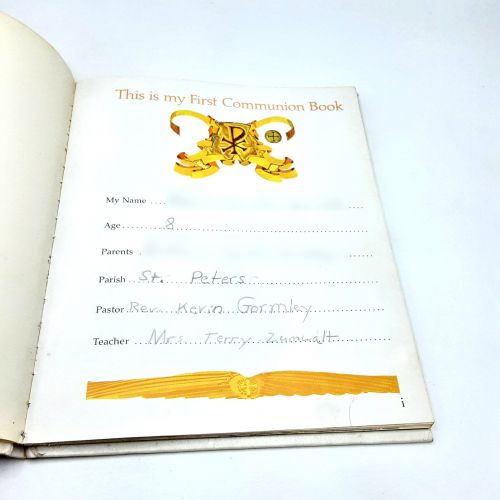 This is my First Communion Book
My Name ....
Age 8
Parents .
Parish St. Peters
Pastor Rev. Kevin Gormley
Teacher Mrs. Terry Zumwalt
i